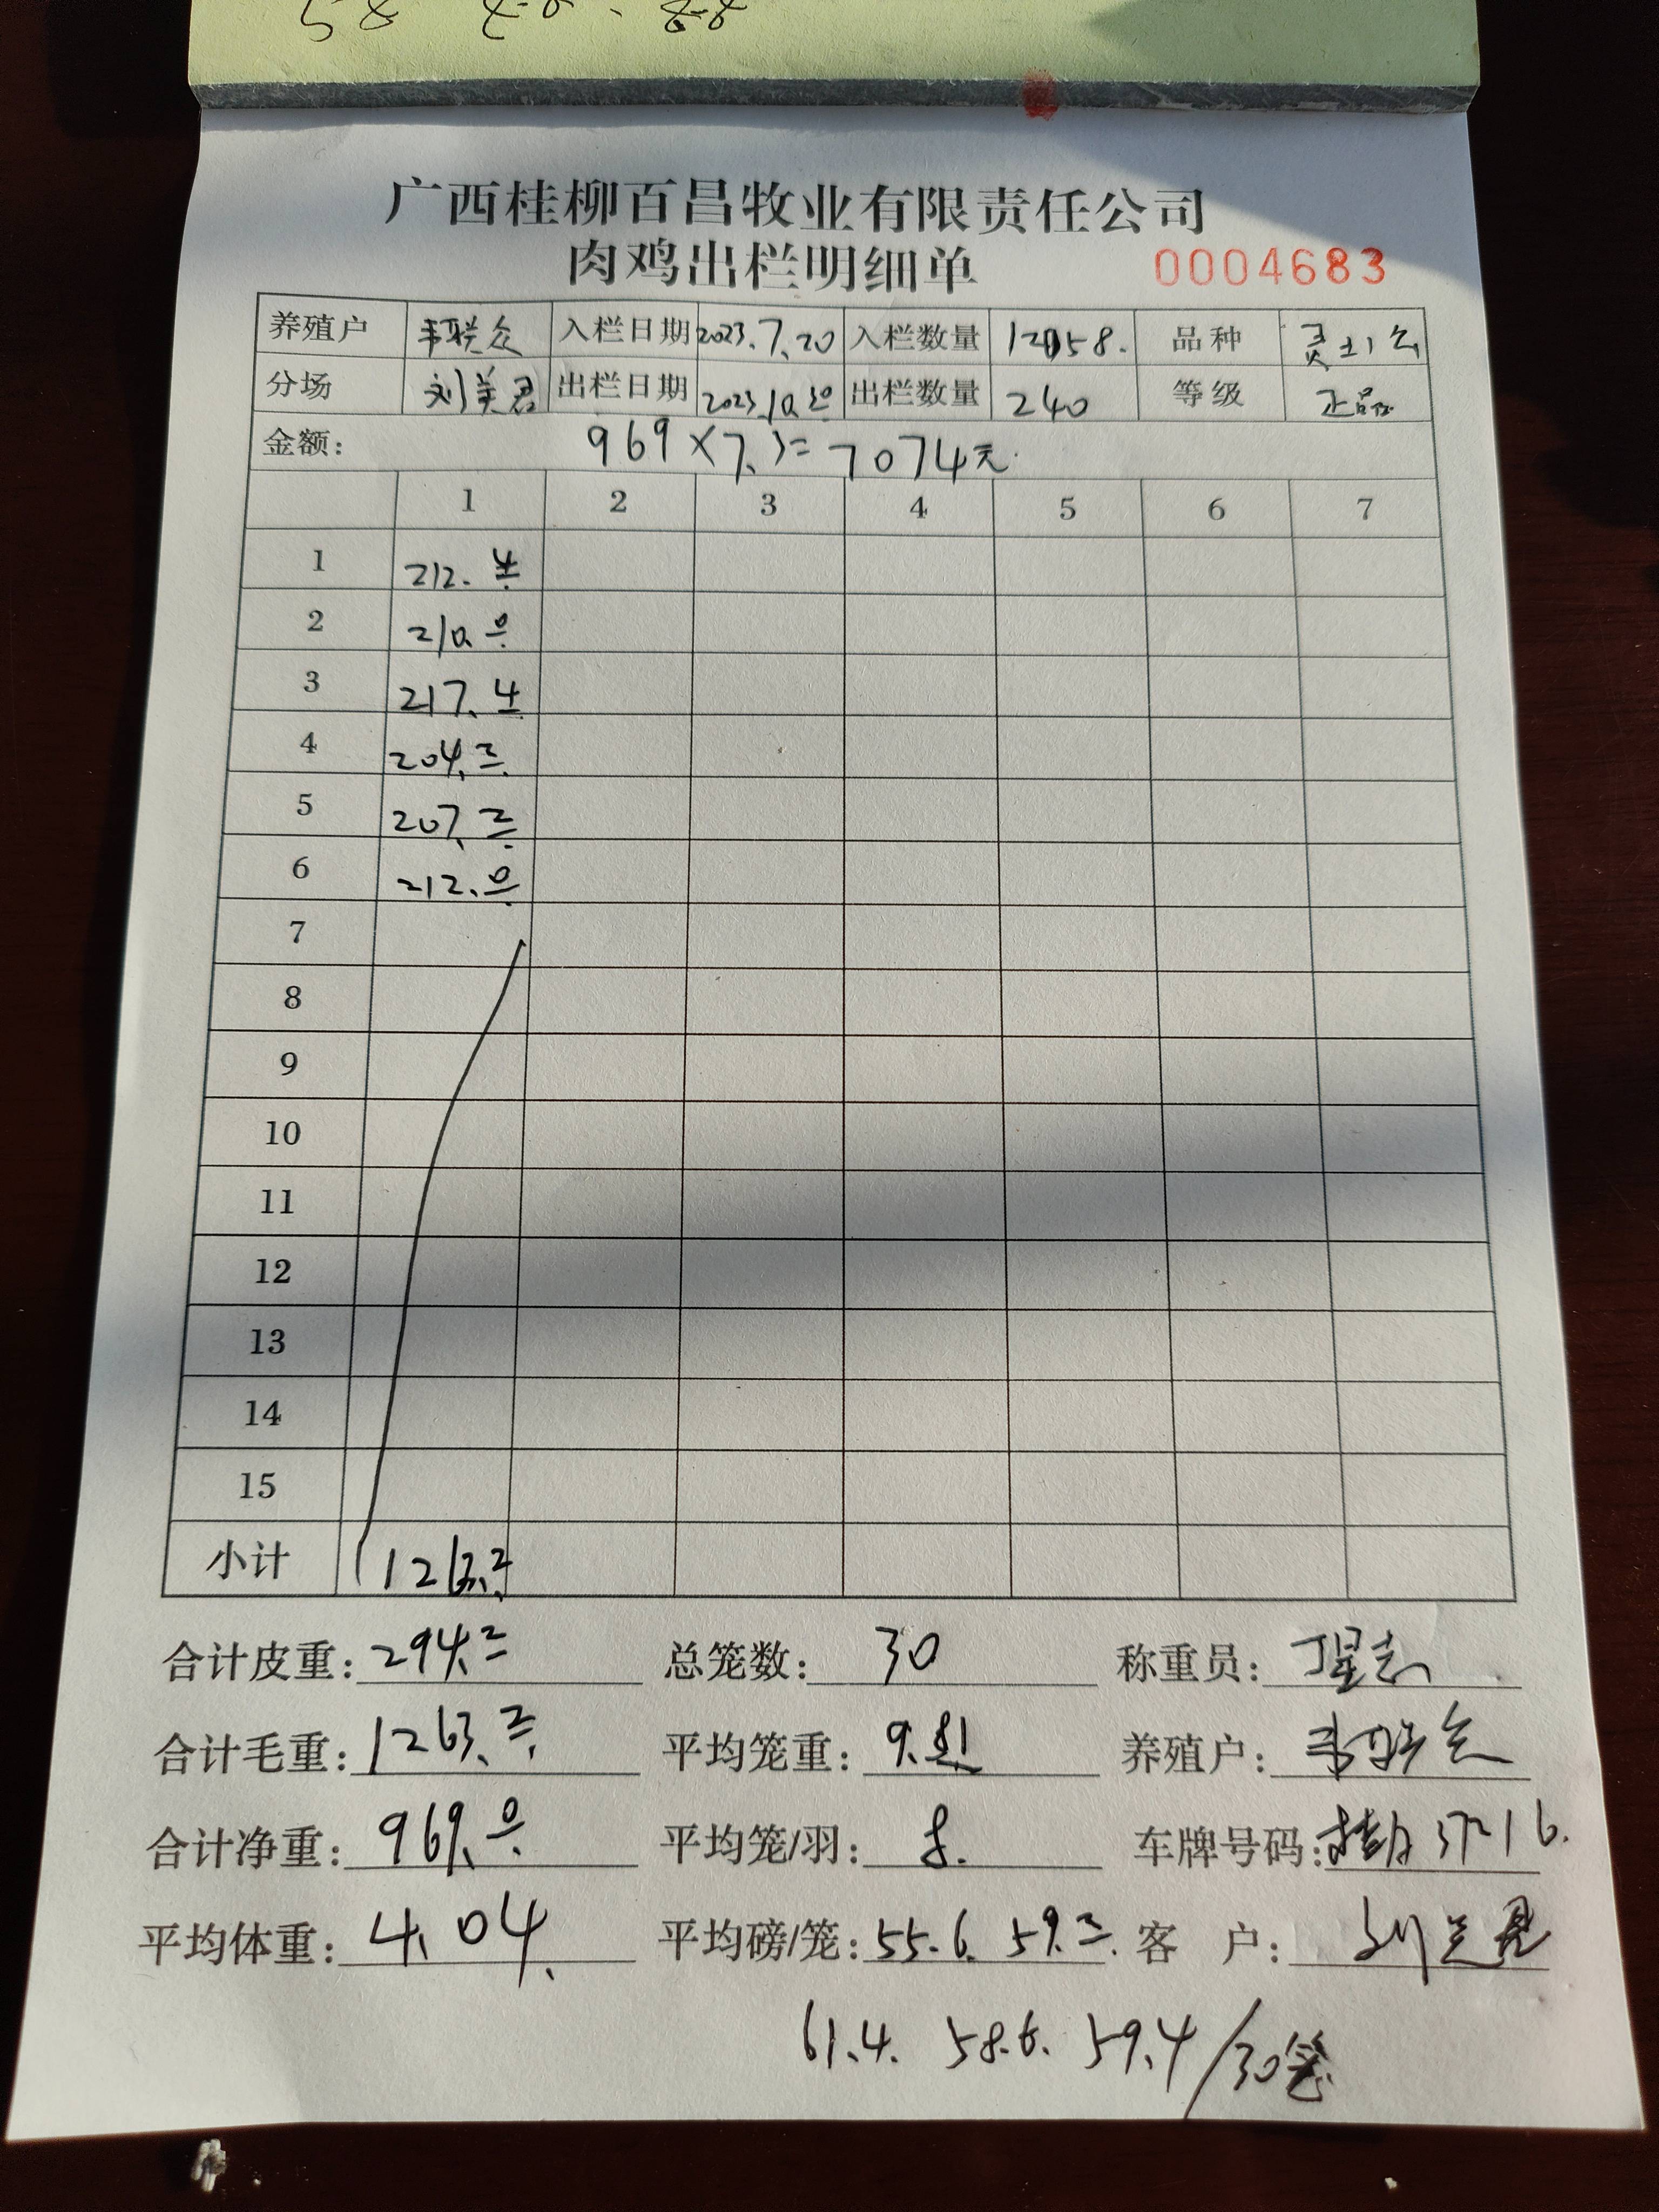 广西桂柳百昌牧业有限责任公司
肉鸡出栏明细单 0004683
养殖户 韦联众 入栏日期 2023.7.20 入栏数量 12058. 品种 灵土2公
分场 刘美君 出栏日期 2023.10.30 出栏数量 240 等级 正品
金额: 969×7.3=7074元
1 2 3 4 5 6 7
1 212.4
2 210.0
3 217.4
4 204.2
5 207.2
6 212.0
7
8
9
10
11
12
13
14
15
小计 1263.2
合计皮重: 294.2 总笼数: 30 称重员:
合计毛重: 1263.2 平均笼重: 9.81 养殖户: 韦联众
合计净重: 969.0 平均笼/羽: 8. 车牌号码:
平均体重: 4.04 平均磅/笼: 55.6 59.2 客 户:
61.4. 58.6. 59.4/30笼